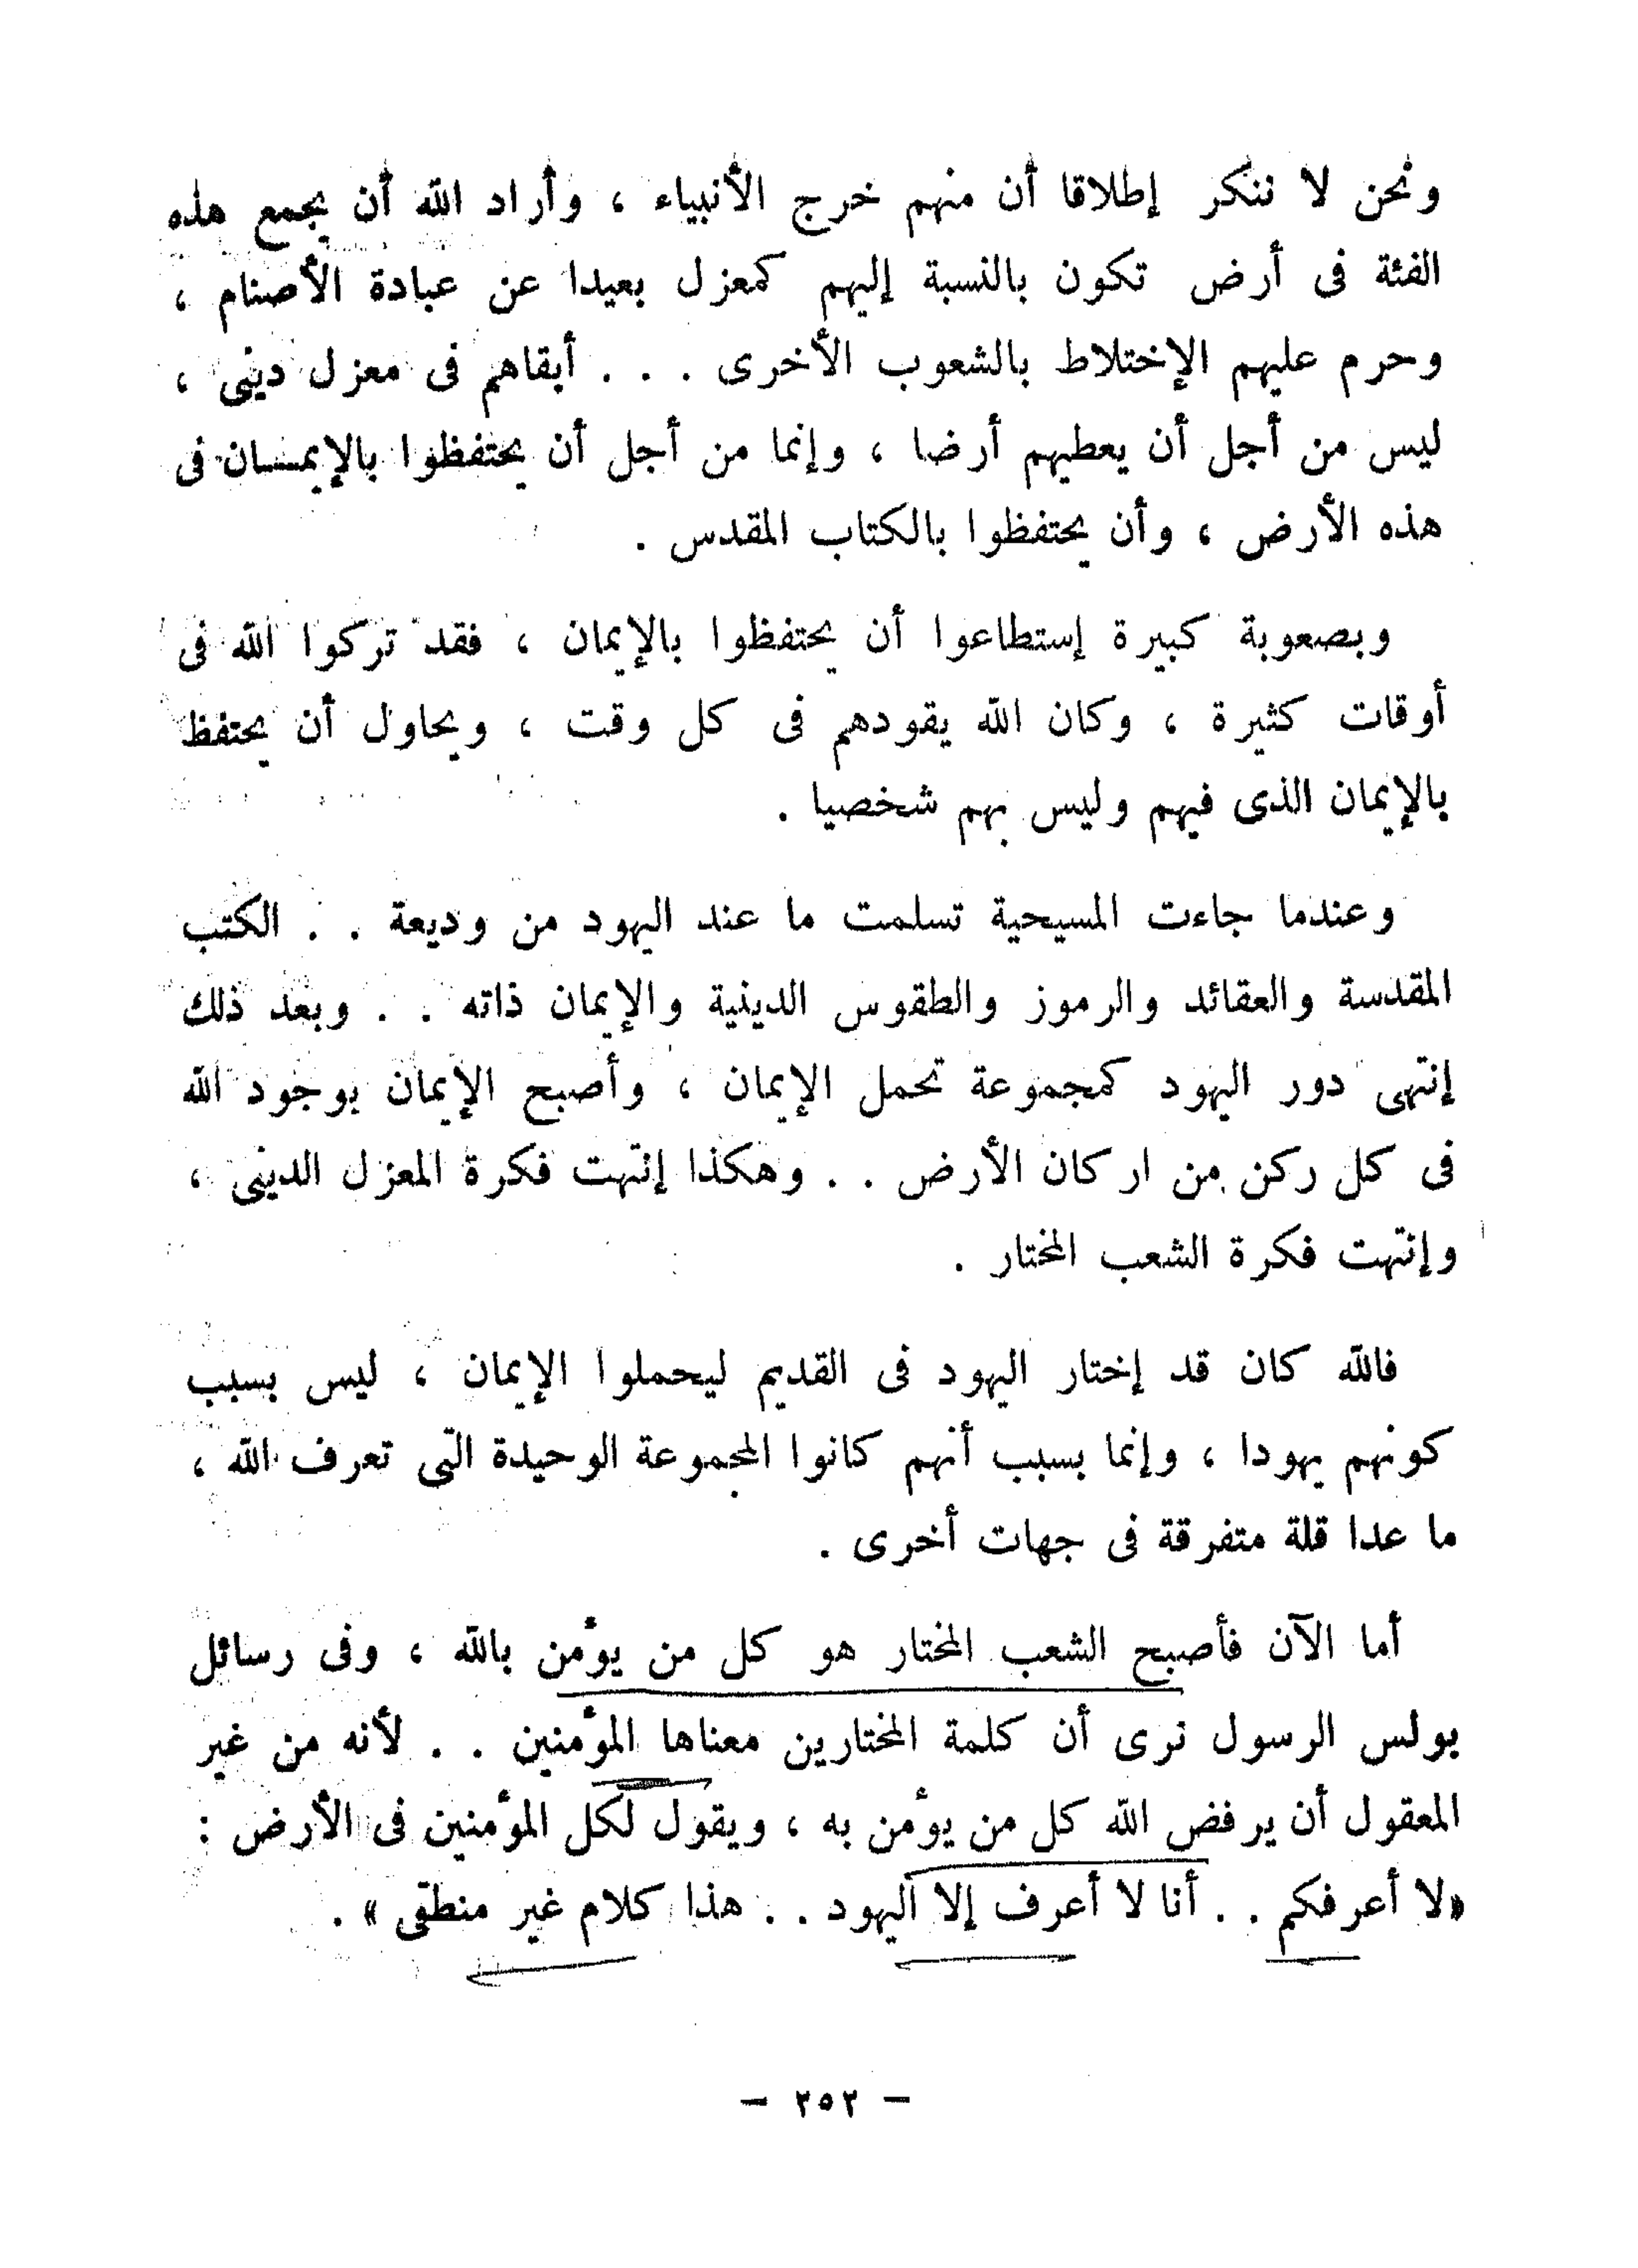 ونحن لا ننكر إطلاقا أن منهم خرج الأنبياء ، وأراد الله أن يجمع هذه
الفئة فى أرض تكون بالنسبة إليهم كمعزل بعيدا عن عبادة الأصنام ،
وحرم عليهم الإختلاط بالشعوب الأخرى . . . أبقاهم فى معزل دينى ،
ليس من أجل أن يعطيهم أرضا ، وإنما من أجل أن يحتفظوا بالإيمــان فى
هذه الأرض ، وأن يحتفظوا بالكتاب المقدس .
وبصعوبة كبيرة إستطاعوا أن يحتفظوا بالإيمان ، فقد تركوا الله فى
أوقات كثيرة ، وكان الله يقودهم فى كل وقت ، ويحاول أن يحتفظ
بالإيمان الذى فيهم وليس بهم شخصيا .
وعندما جاءت المسيحية تسلمت ما عند اليهود من وديعة . . الكتب
المقدسة والعقائد والرموز والطقوس الدينية والإيمان ذاته . . وبعد ذلك
إنتهى دور اليهود كمجموعة تحمل الإيمان ، وأصبح الإيمان بوجود الله
فى كل ركن من اركان الأرض . . وهكذا إنتهت فكرة المعزل الدينى ،
وإنتهت فكرة الشعب المختار .
فالله كان قد إختار اليهود فى القديم ليحملوا الإيمان ، ليس بسبب
كونهم يهودا ، وإنما بسبب أنهم كانوا المجموعة الوحيدة التى تعرف الله ،
ما عدا قلة متفرقة فى جهات أخرى .
أما الآن فأصبح الشعب المختار هو كل من يؤمن بالله ، وفى رسائل
بولس الرسول نرى أن كلمة المختارين معناها المؤمنين . . لأنه من غير
المعقول أن يرفض الله كل من يؤمن به ، ويقول لكل المؤمنين فى الأرض :
«لا أعرفكم . . أنا لا أعرف إلا اليهود . . هذا كلام غير منطقى » .
– ٢٥٢ –